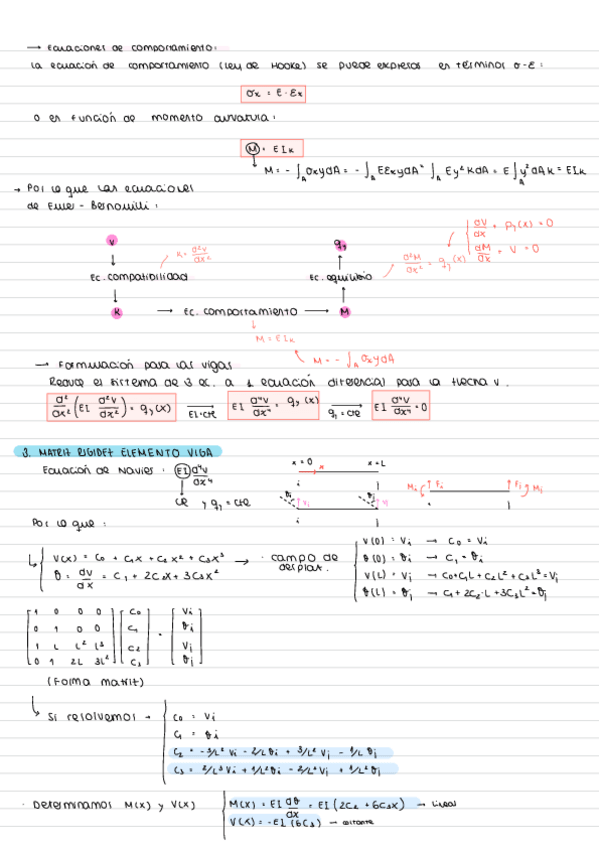 → Ecuaciones de comportamiento:
La ecuación de comportamiento (Ley de Hooke) se puede expresar en términos σ-ε:
σx = E · εx
o en función de momento curvatura:
M = EIκ
M = - ∫A σxydA = - ∫A EεxydA = ∫A Ey²κdA = E ∫A y²dAκ = EIκ
→ Por lo que las ecuaciones
de Euler - Bernouilli:
dV/dx + py(x) = 0
dM/dx + V = 0
v
κ = d²v/dx²
qy
d²M/dx² = qy(x)
Ec. compatibilidad
Ec. equilibrio
κ → Ec. comportamiento → M
M = EIκ
M = - ∫A σxydA
→ Formulación para las vigas
Reduce el sistema de 3 ec. a 1 ecuación diferencial para la flecha v.
d²/dx² (EI d²v/dx²) = qy(x) → EI=cte EI d⁴v/dx⁴ = qy(x) → qy=cte EI d⁴v/dx⁴ = 0
3. MATRIZ RIGIDEZ ELEMENTO VIGA
x=0 x=L
Ecuación de Navier: EI d⁴v/dx⁴
x
i j
Mi Fi Fj Mj
θi vi θj vj
cte y qy = cte
i j
i j
Por lo que:
V(x) = C0 + C1x + C2x² + C3x³
θ = dv/dx = C1 + 2C2x + 3C3x²
→ · campo de
desplaz.
V(0) = Vi → C0 = Vi
θ(0) = θi → C1 = θi
V(L) = Vj → C0+C1L+C2L²+C3L³=Vj
θ(L) = θj → C1+2C2·L+3C3L²=θj
1 0 0 0 C0 Vi
0 1 0 0 C1 θi
1 L L² L³ C2 = Vj
0 1 2L 3L² C3 θj
(Forma matriz)
Si resolvemos →
C0 = Vi
C1 = θi
C2 = -3/L² Vi - 2/L θi + 3/L² Vj - 1/L θj
C3 = 2/L³ Vi + 1/L² θi - 2/L³ Vj + 1/L² θj
· Determinamos M(x) y V(x)
M(x) = EI dθ/dx = EI (2C2 + 6C3x) → lineal
V(x) = -EI (6C3) → constante